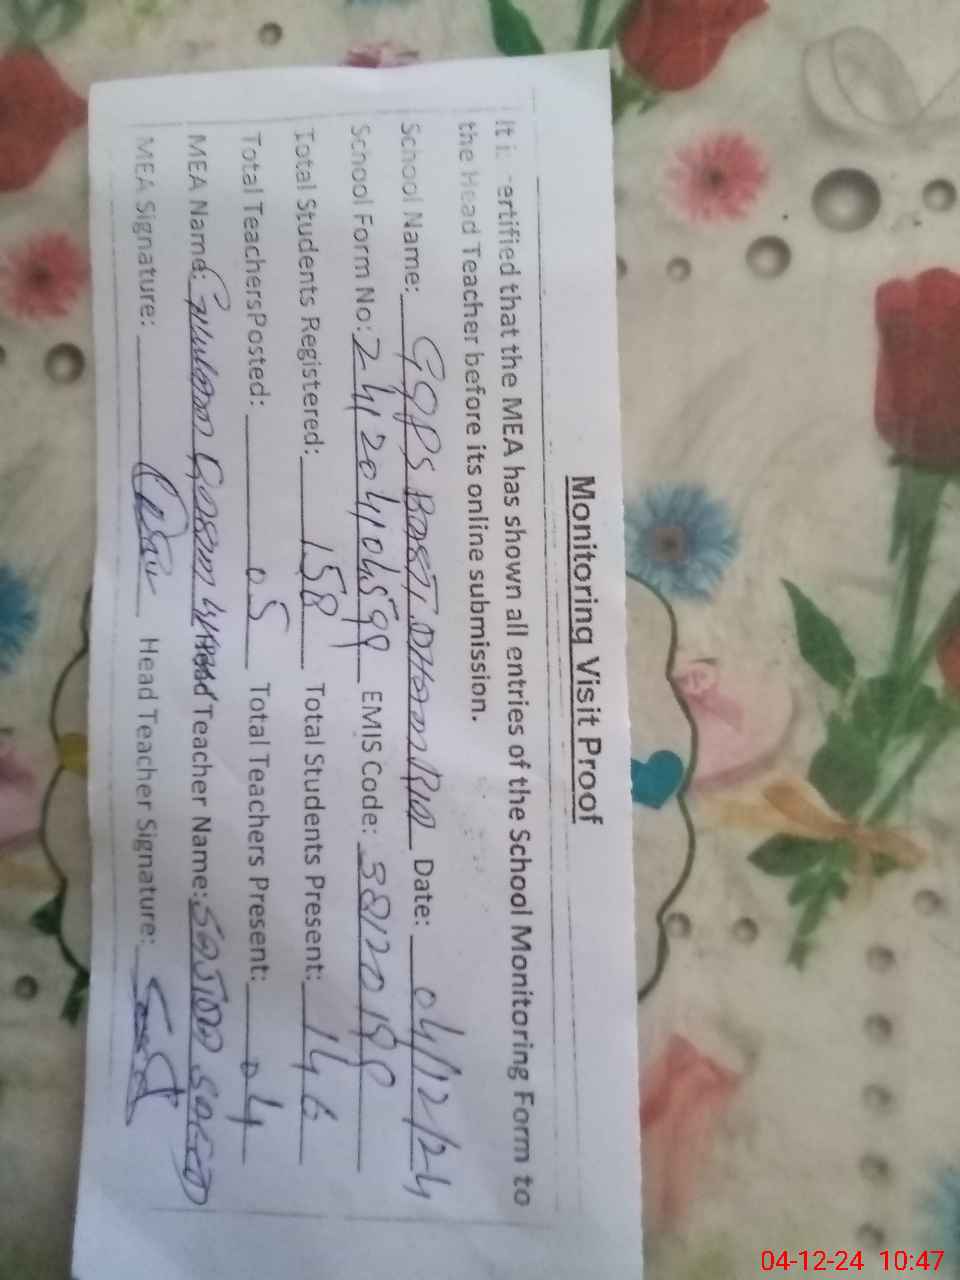 Monitoring Visit Proof
It is certified that the MEA has shown all entries of the School Monitoring Form to
the Head Teacher before its online submission.
School Name: GGPS BASTI Date: 04/12/24
School Form No: 241204104599 EMIS Code:
Total Students Registered: 158 Total Students Present: 146
Total TeachersPosted: 05 Total Teachers Present: 04
MEA Name: Ghulam Teacher Name: SAJIDA SAEED
MEA Signature: Head Teacher Signature:
04-12-24 10:47